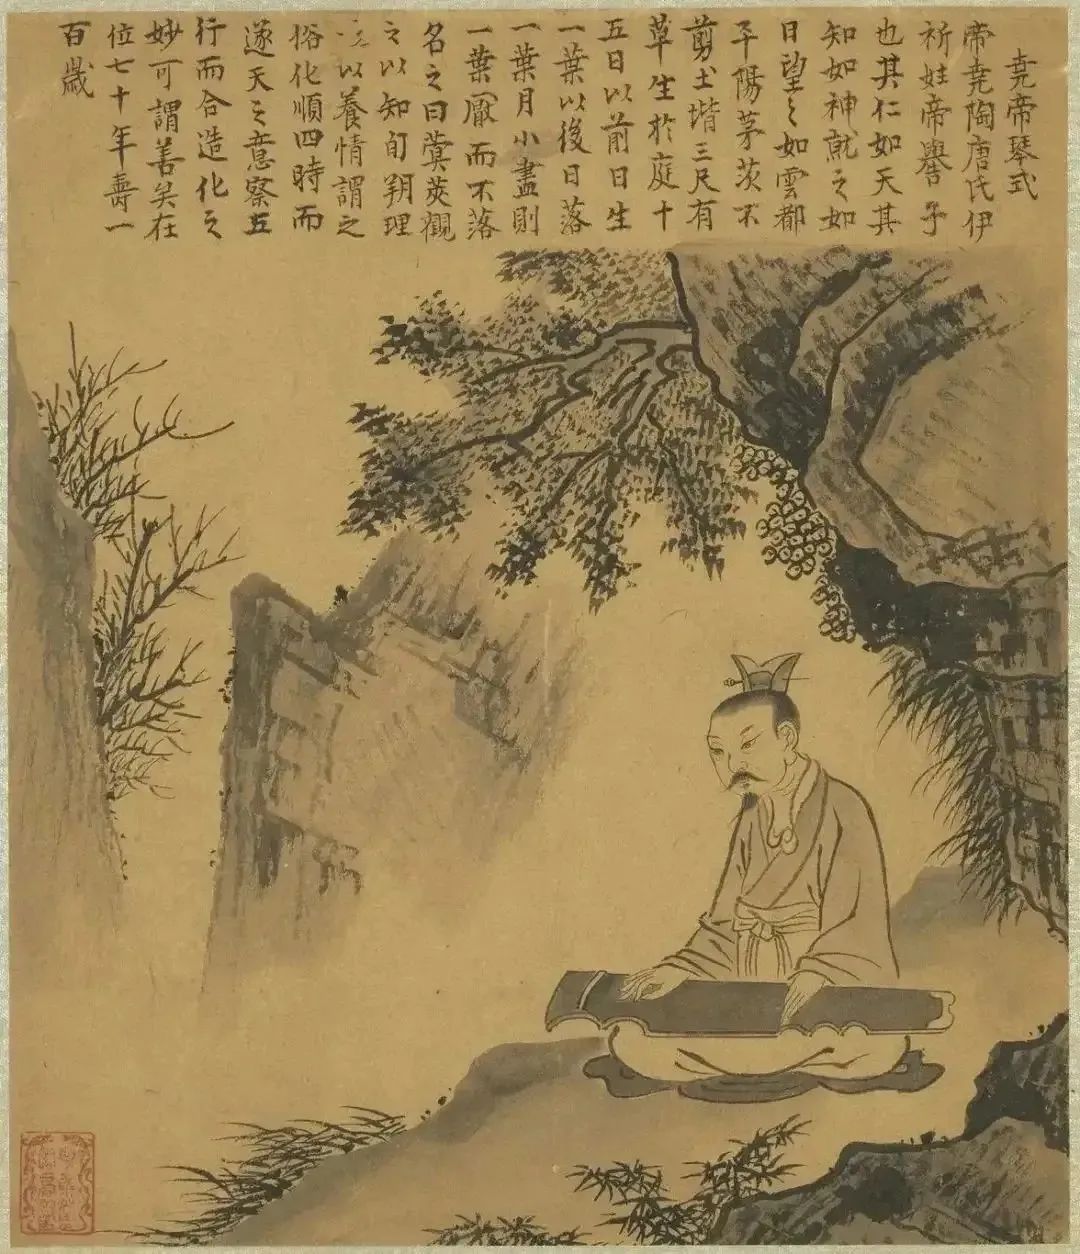 堯帝琴式
帝堯陶唐氏伊
祈姓帝嚳子
也其仁如天其
知如神就之如
日望之如雲都
平陽茅茨不
剪土堦三尺有
草生於庭十
五日以前日生
一葉以後日落
一葉月小盡則
一葉厭而不落
名之曰蓂莢觀
之以知旬朔理
以養情謂之
俗化順四時而
遂天之意察五
行而合造化之
妙可謂善矣在
位七十年壽一
百歲